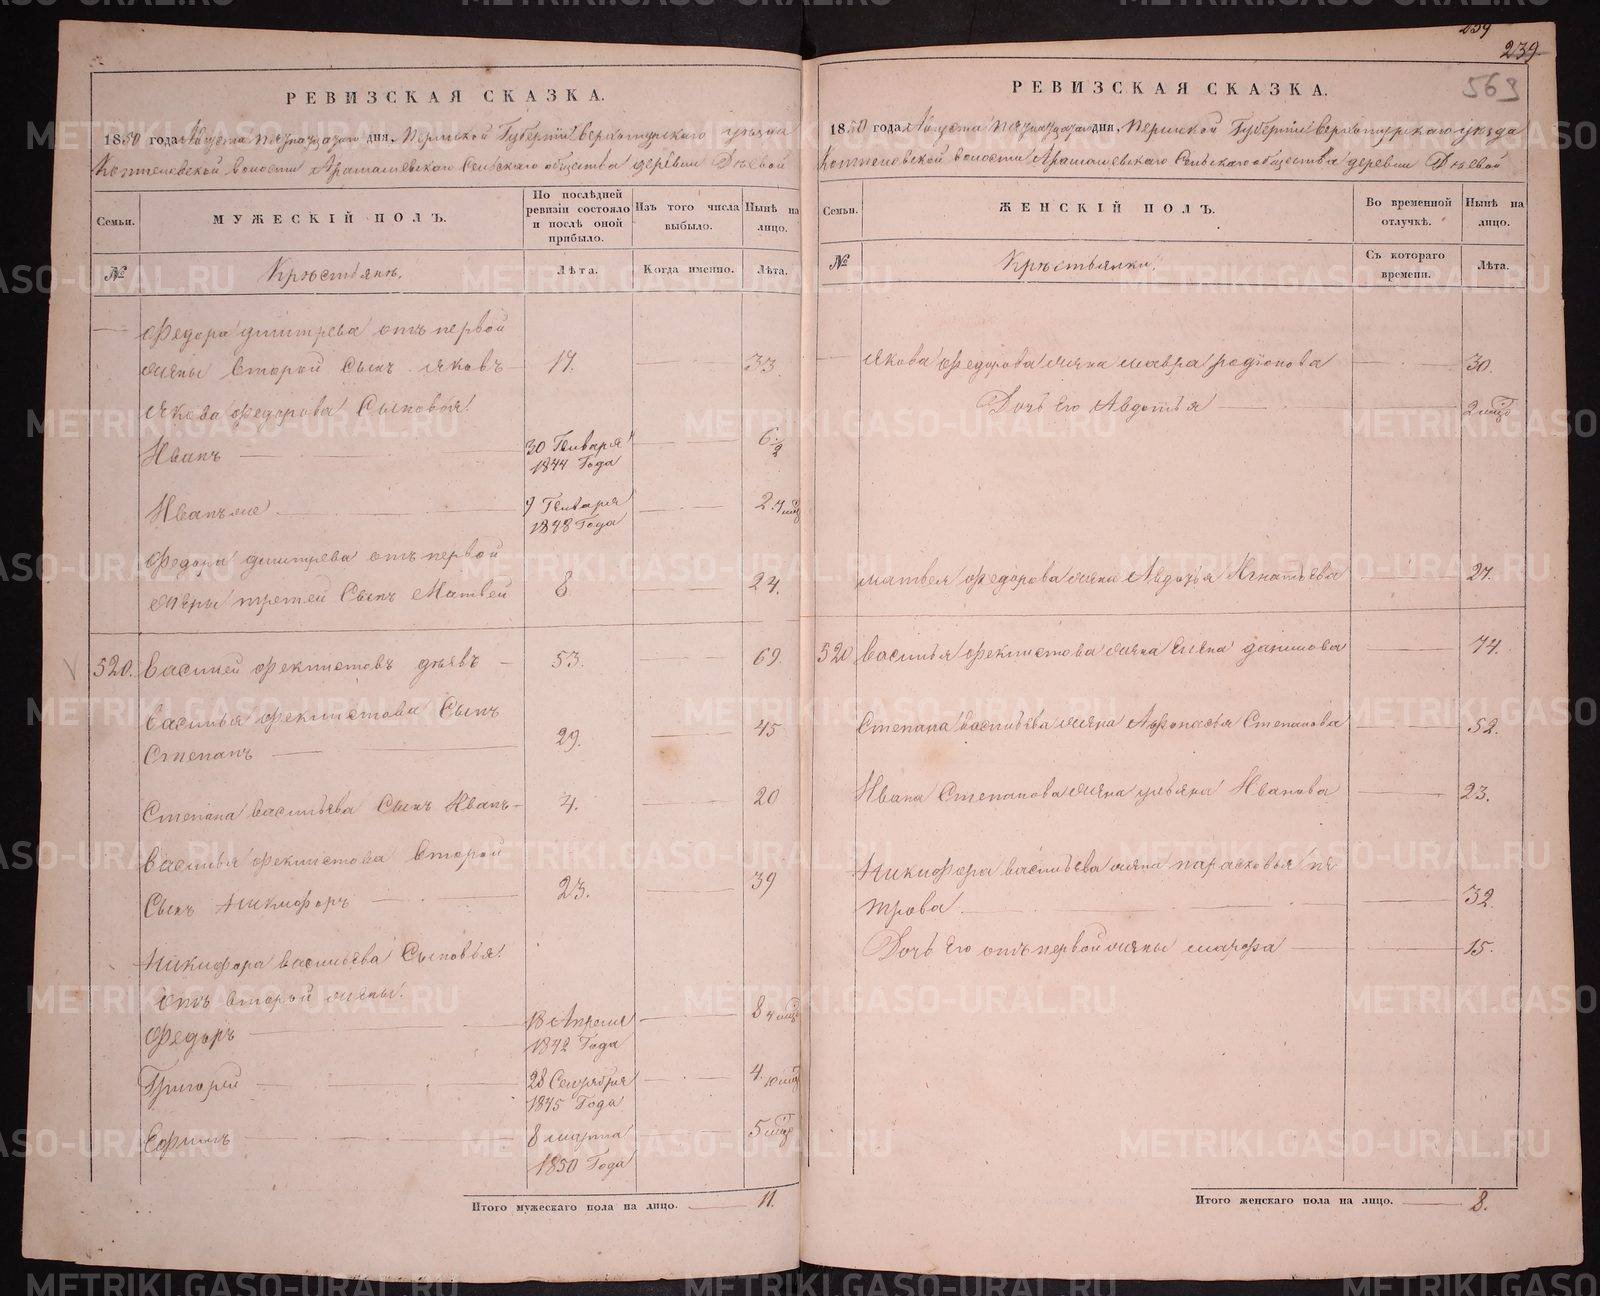 239
239
569
РЕВИЗСКАЯ СКАЗКА.
1850 года Августа пятнадцатого дня, Пермской Губернии Верхотурскаго уезда
Коптеловской волости Арамашевскаго Сельскаго общества деревни Дѣевой
Семьи.
МУЖЕСКІЙ ПОЛЪ.
По послѣдней ревизіи состояло и послѣ оной прибыло.
Изъ того числа выбыло.
Нынѣ на лицо.
№
Крѣстьянъ.
Лѣта.
Когда именно.
Лѣта.
Федора Дмитрева отъ первой
жены второй Сынъ Яковъ 17. 33
Якова Федорова Сыновья:
Иванъ 30 Генваря 1844 Года 6 1/2
Иванъ же 9 Генваря 1848 Года 2. 7 мѣс
Федора Дмитрева отъ первой
жены третей Сынъ Матвей 8 24.
520. Василей Феклистовъ Дѣевъ 53. 69.
Василья Феклистова Сынъ
Степанъ 29. 45
Степана Васильева Сынъ Иванъ 4. 20
Василья Феклистова второй
Сынъ Никифоръ 23. 39
Никифора Васильева Сыновья:
Отъ второй жены:
Федоръ 18 Апреля 1842 Года 8 4 мѣс
Григорей 28 Сентября 1845 Года 4. 10 мѣс
Ефимъ 8 марта 1850 Года 5 мѣс
Итого мужескаго пола на лицо. 11.
РЕВИЗСКАЯ СКАЗКА.
1850 года Августа пятнадцатого дня, Пермской Губернии Верхотурскаго уезда
Коптеловской волости Арамашевскаго Сельскаго общества деревни Дѣевой
Семьи.
ЖЕНСКІЙ ПОЛЪ.
Во временной отлучкѣ.
Нынѣ на лицо.
№
Крѣстьянки.
Съ котораго времени.
Лѣта.
Якова Федорова жена Мавра Родіонова 30.
Дочь Его Авдотья 2 мѣс
Матвея Федорова жена Авдотья Игнатьева 27.
520 Василья Феклистова жена Елена Данилова 74.
Степана Васильева жена Афонасья Степанова 52.
Ивана Степанова жена Ульяна Иванова 23.
Никифора Васильева жена Парасковья Пе
трова 32.
Дочь Его отъ первой жены Марфа 15.
Итого женскаго пола на лицо. 8.
METRIKI.GASO-URAL.RU